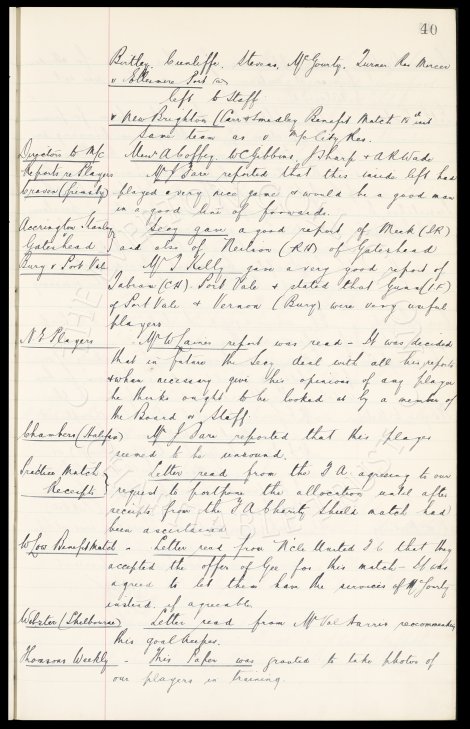 40
Birtley, Cunliffe, Stevens, McGourty, Turner Res Mercer
v Ellesmere Port
left to Staff
v New Brighton (Carr & Smedley Benefit Match 18th inst
Same team as v M/c City Res.
Directors to M/c Messrs A Coffey, W C Gibbins, J Sharp & A R Wade
Reports re Players Mr J Fare reported that this inside left had
Craven (Grimsby) played a very nice game & would be a good man
in a good line of forwards.
Accrington Stanley Secy gave a good report of Meek (IR)
Gateshead and also of Neilson (RH) of Gateshead
Bury & Port Vale Mr T Kelly gave a very good report of
(CH) Port Vale & stated that (IF)
of Port Vale & Vernon (Bury) were very useful
players
N.E. Players Mr W report was read – It was decided
that in future the Secy deal with all his reports
& when necessary give his opinions of any player
he thinks ought to be looked at by a member of
the Board or Staff.
Chambers (Halifax) Mr J Fare reported that this player
seemed to be unsound.
Practice Match Letter read from the F A agreeing to our
Receipts request to postpone the allocation until after
receipts from the F A Charity Shield match had
been ascertained
W Low Benefit Match – Letter read from N'cle United F C that they
accepted the offer of Gee for this match – It was
agreed to let them have the services of McGourty
instead, if agreeable.
Webster (Shelbourne) – Letter read from Mr Val Harris recommending
this goalkeeper.
Thomsons Weekly – This Paper was granted to take photos of
our players in training.